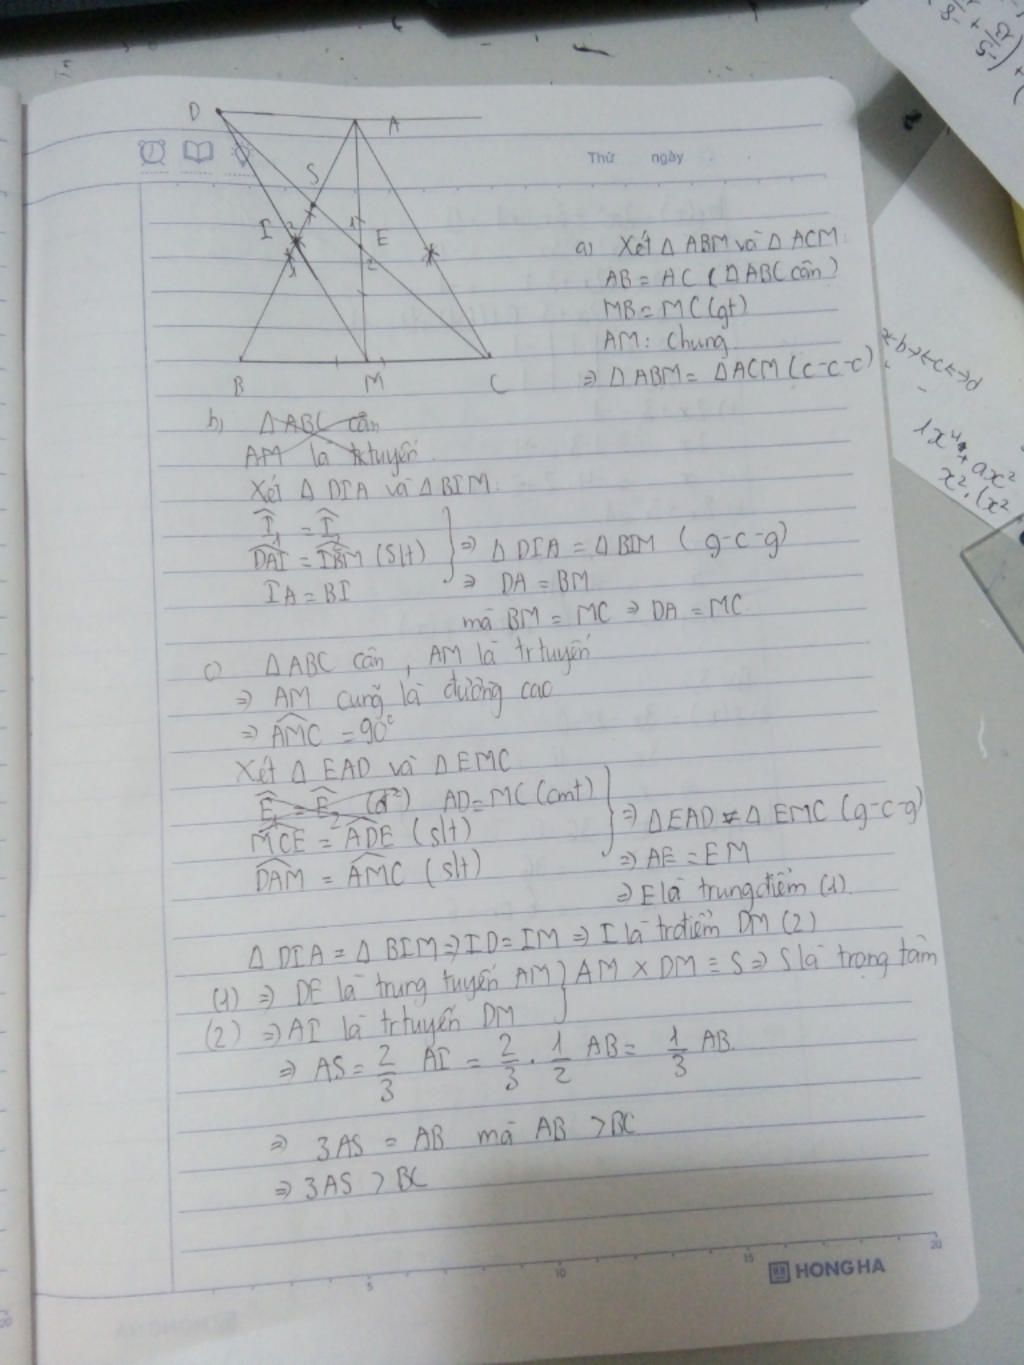 D
A
S
I
2
1
E
1
2
B
M
C
Thứ ngày
a) Xét Δ ABM và Δ ACM
AB = AC (ΔABC cân)
MB = MC (gt)
AM: Chung
⇒ Δ ABM = ΔACM (c-c-c)
b) ΔABC cân
AM là trtuyến
Xét Δ DIA và ΔBIM:
Î₁ = Î₂
DAI = IBM (slt) } ⇒ Δ DIA = Δ BIM (g-c-g)
IA = BI ⇒ DA = BM
mà BM = MC ⇒ DA = MC
c) ΔABC cân, AM là trtuyến
⇒ AM cũng là đường cao
⇒ AMC = 90°
Xét Δ EAD và Δ EMC
Ê₁ = Ê₂ (đ²) AD = MC (cmt)
MCE = ADE (slt) } ⇒ ΔEAD = Δ EMC (g-c-g)
DAM = AMC (slt) ⇒ AE = EM
⇒ E là trung điểm (1)
Δ DIA = Δ BIM ⇒ ID = IM ⇒ I là trđiểm DM (2)
(1) ⇒ DE là trung tuyến AM } AM × DM ≡ S ⇒ S là trọng tâm
(2) ⇒ AI là trtuyến DM
⇒ AS = 2/3 AI = 2/3 . 1/2 AB = 1/3 AB.
⇒ 3AS = AB mà AB > BC
⇒ 3AS > BC
5 10 15 20
HONG HA
1x⁴ + ax²
x² . (x²